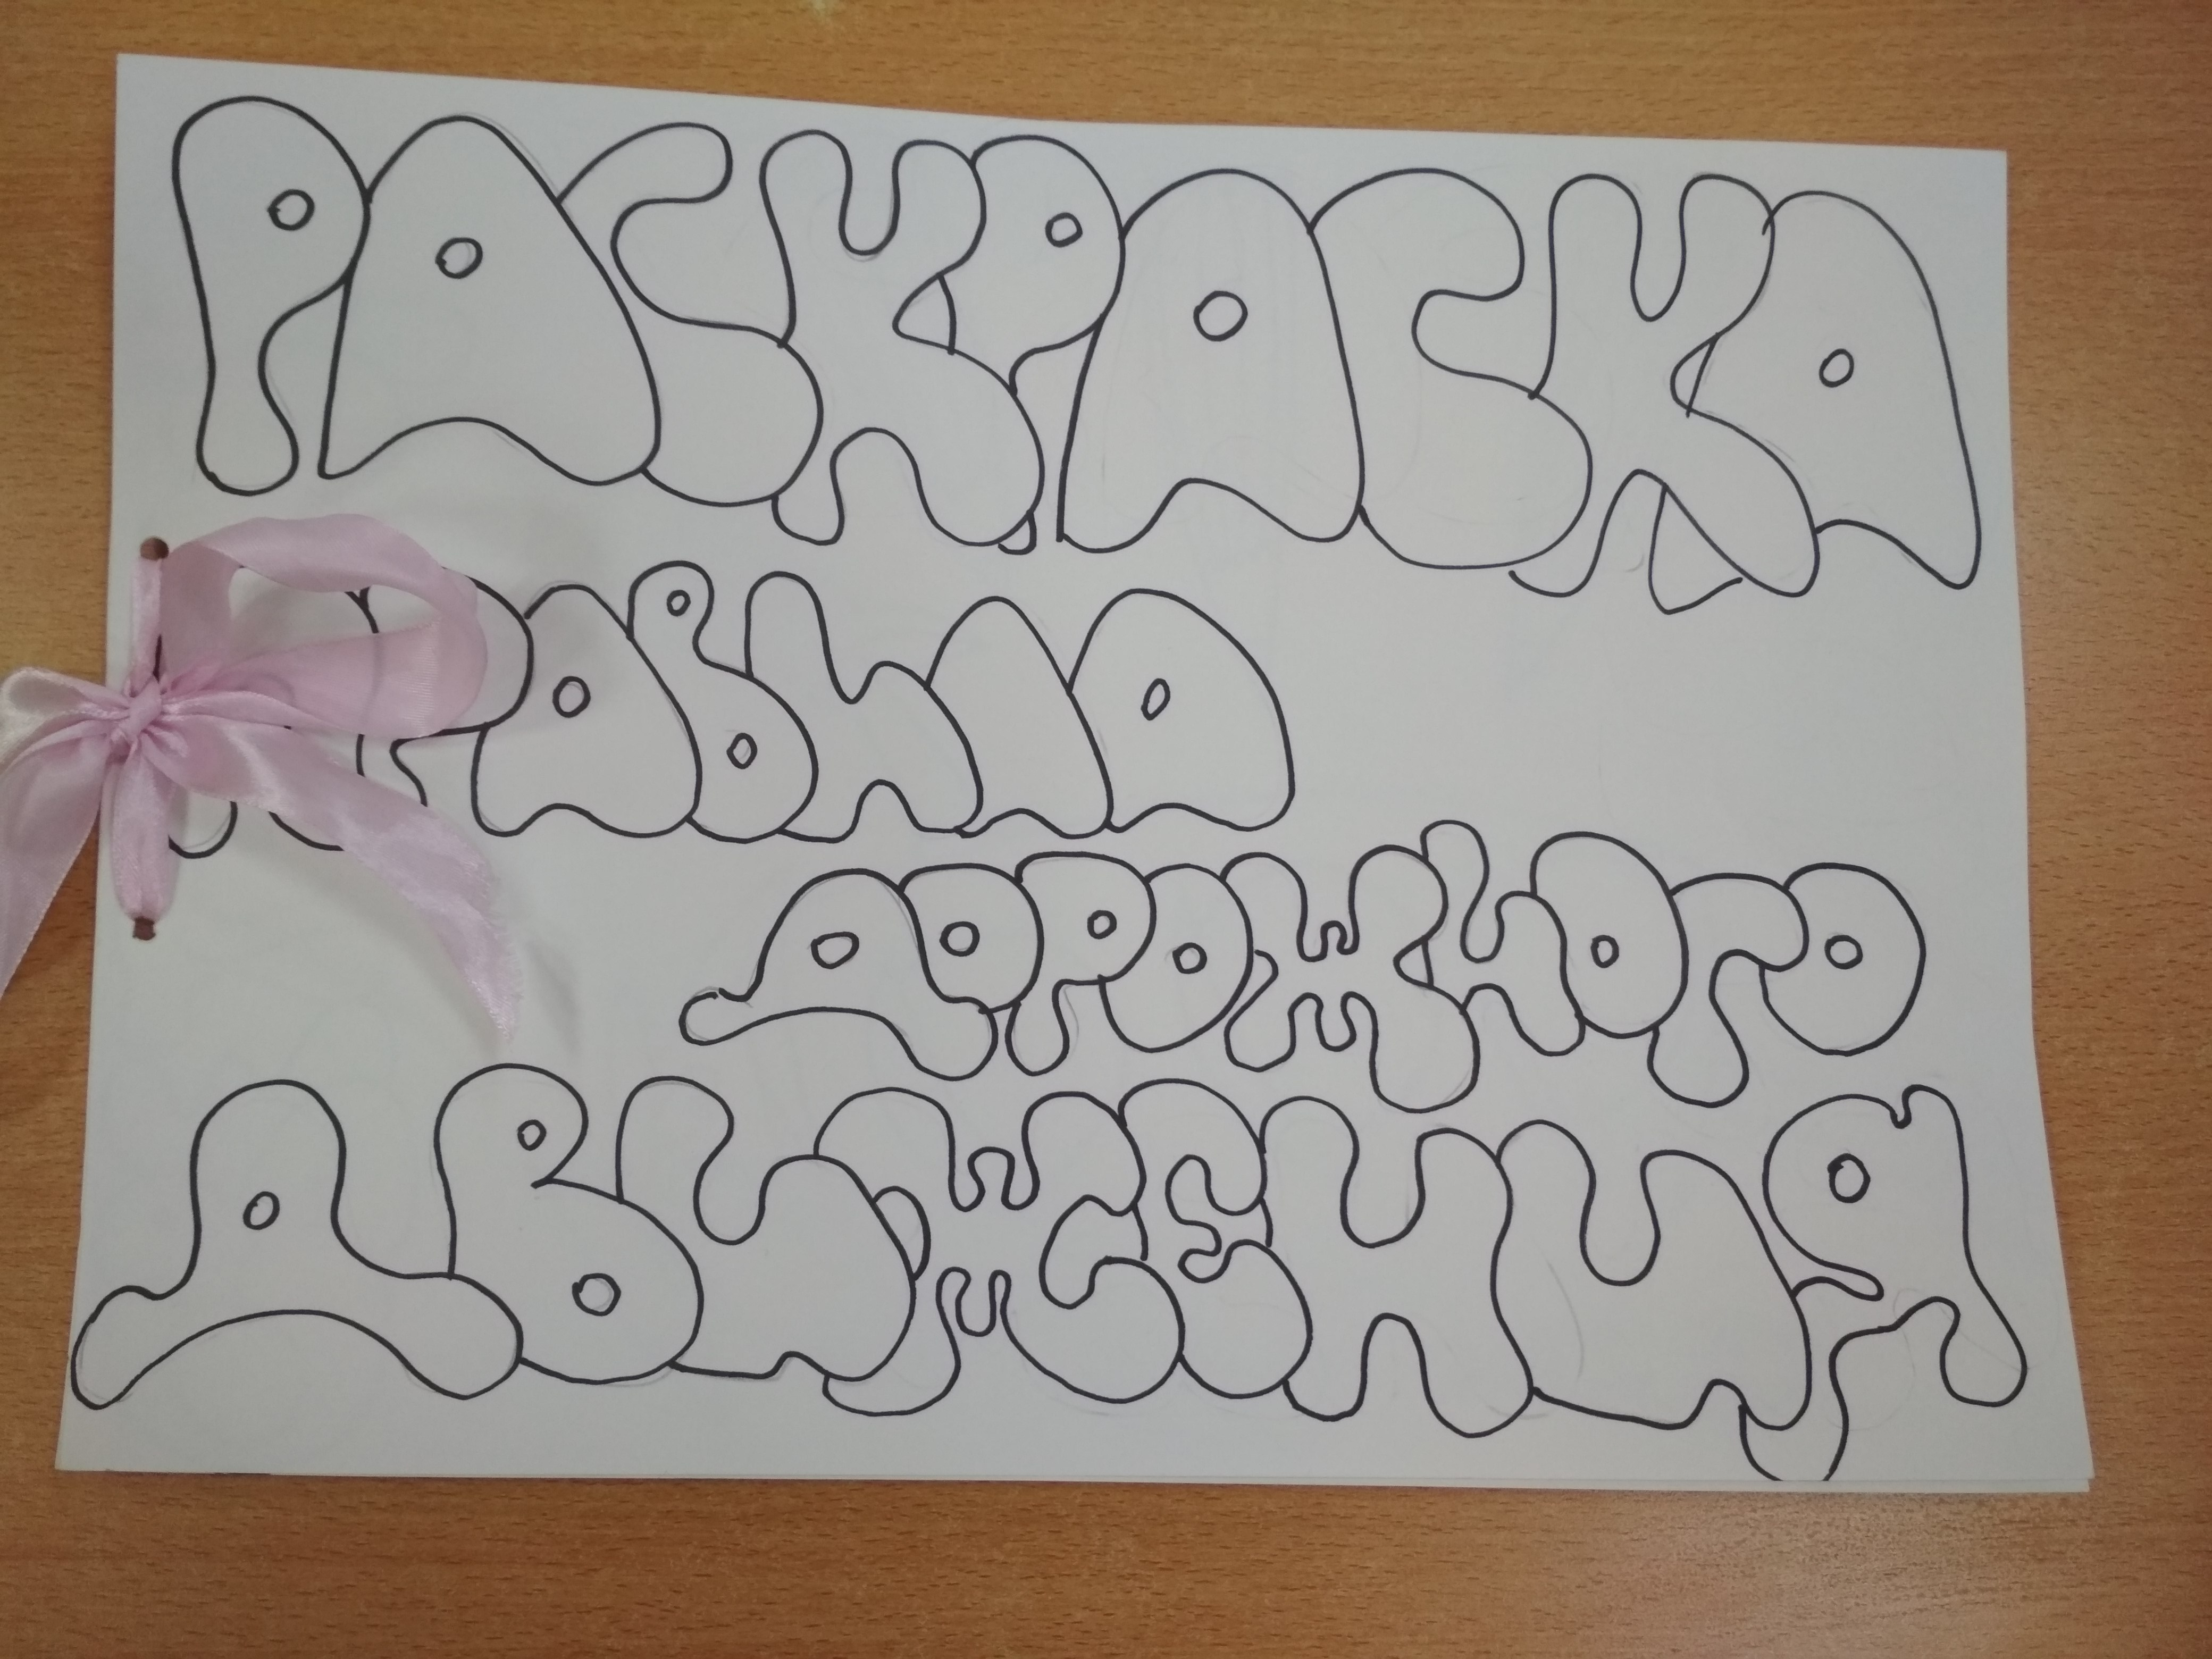 РАСКРАСКА
ПРАВИЛА
ДОРОЖНОГО
ДВИЖЕНИЯ